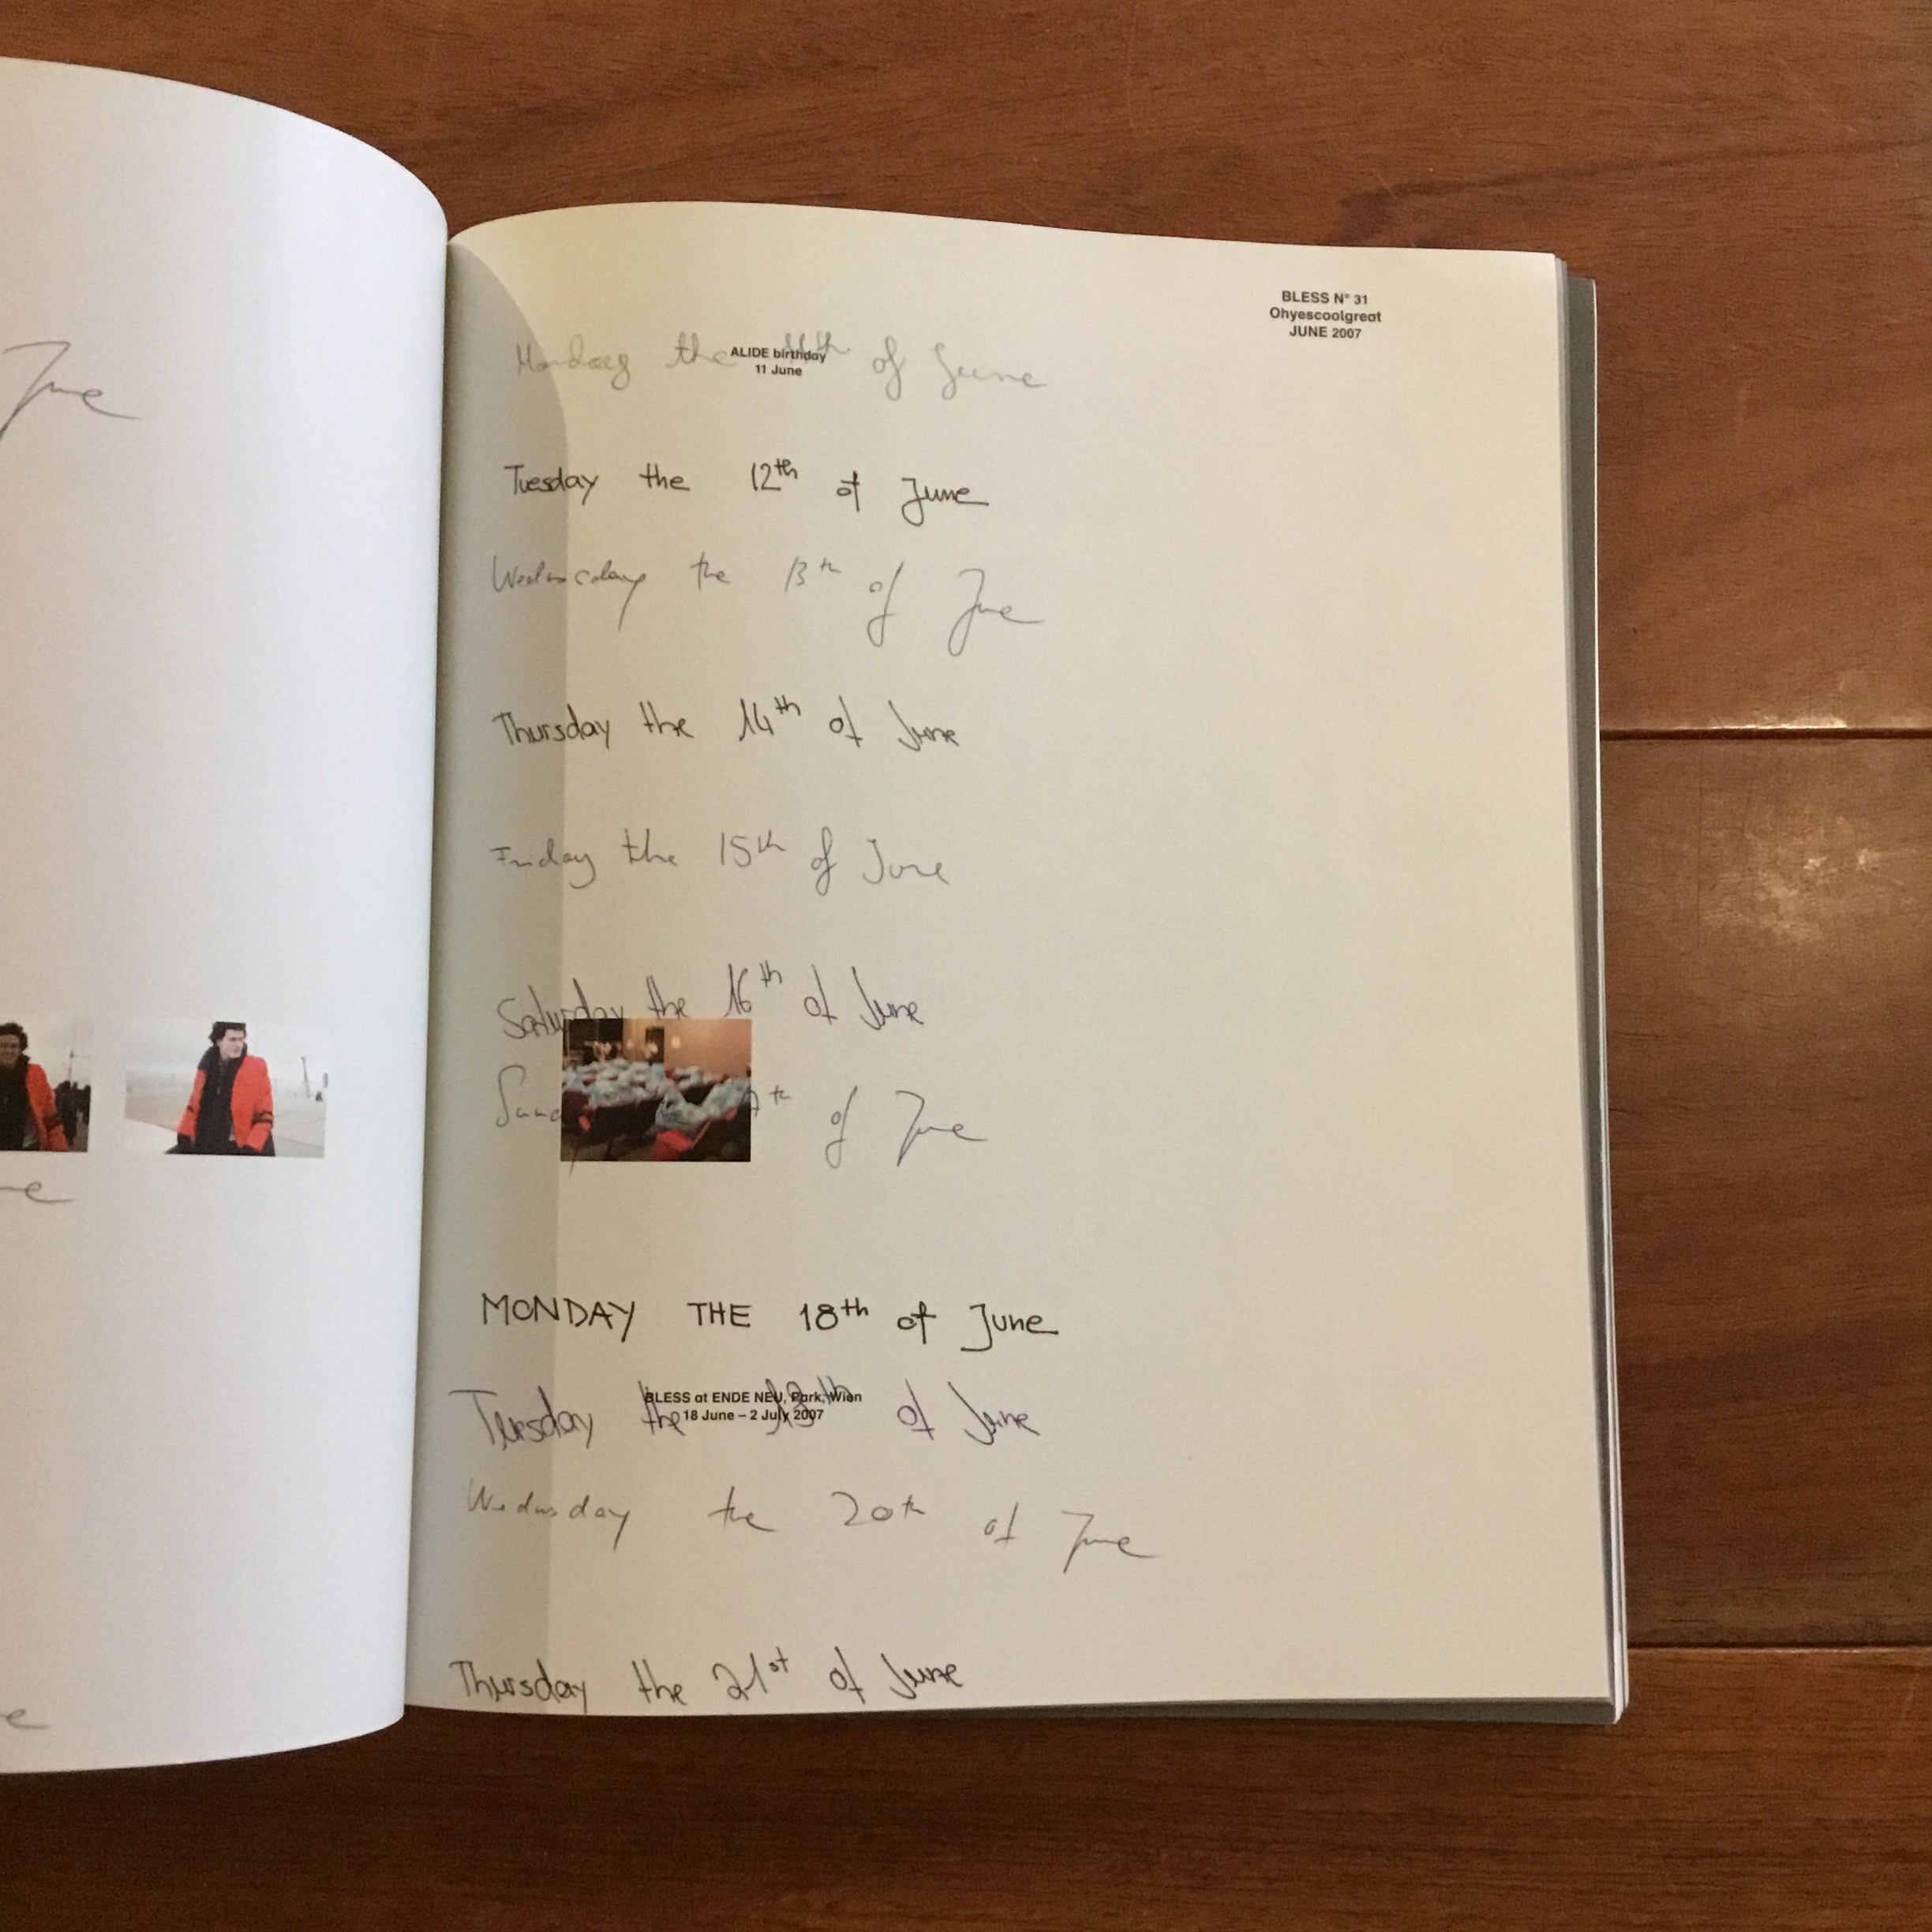 June
BLESS N° 31
Ohyescoolgreat
JUNE 2007
Monday the 11th of June
ALIDE birthday
11 June
Tuesday the 12th of June
Wednesday the 13th of June
Thursday the 14th of June
Friday the 15th of June
Saturday the 16th of June
of June
MONDAY THE 18th of June
Tuesday the of June
BLESS at ENDE NEU, Park, Wien
18 June – 2 July 2007
Wednesday the 20th of June
Thursday the 21st of June